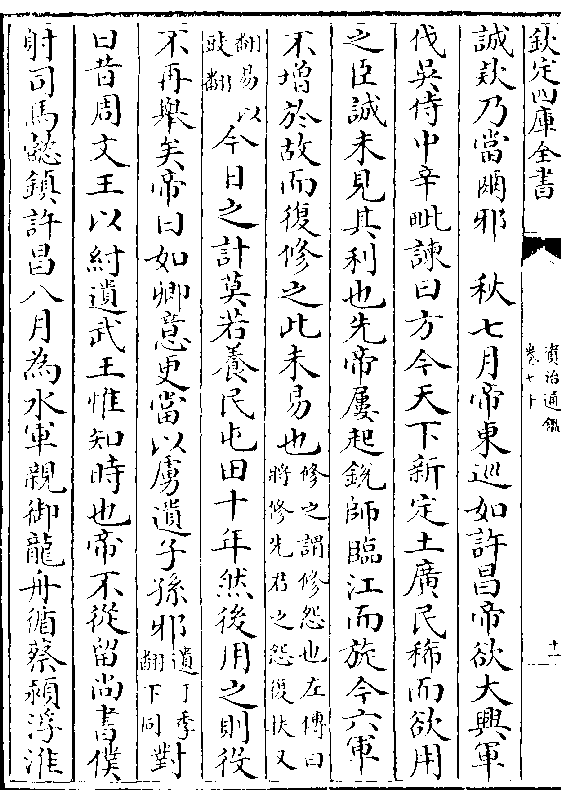 欽定四庫全書
資治通鑑
卷七十
十一
誠欵乃當爾邪　秋七月帝東巡如許昌帝欲大興軍
伐吳侍中辛毗諫曰方今天下新定土廣民稀而欲用
之臣誠未見其利也先帝屢起銳師臨江而旋今六軍
不增於故而復修之此未易也修之謂修怨也左傳曰將修先君之怨復扶又
翻易以豉翻今日之計莫若養民屯田十年然後用之則役
不再舉矣帝曰如卿意更當以虜遺子孫邪遺于季翻下同對
曰昔周文王以紂遺武王惟知時也帝不從留尚書僕
射司馬懿鎮許昌八月為水軍親御龍舟循蔡潁浮淮